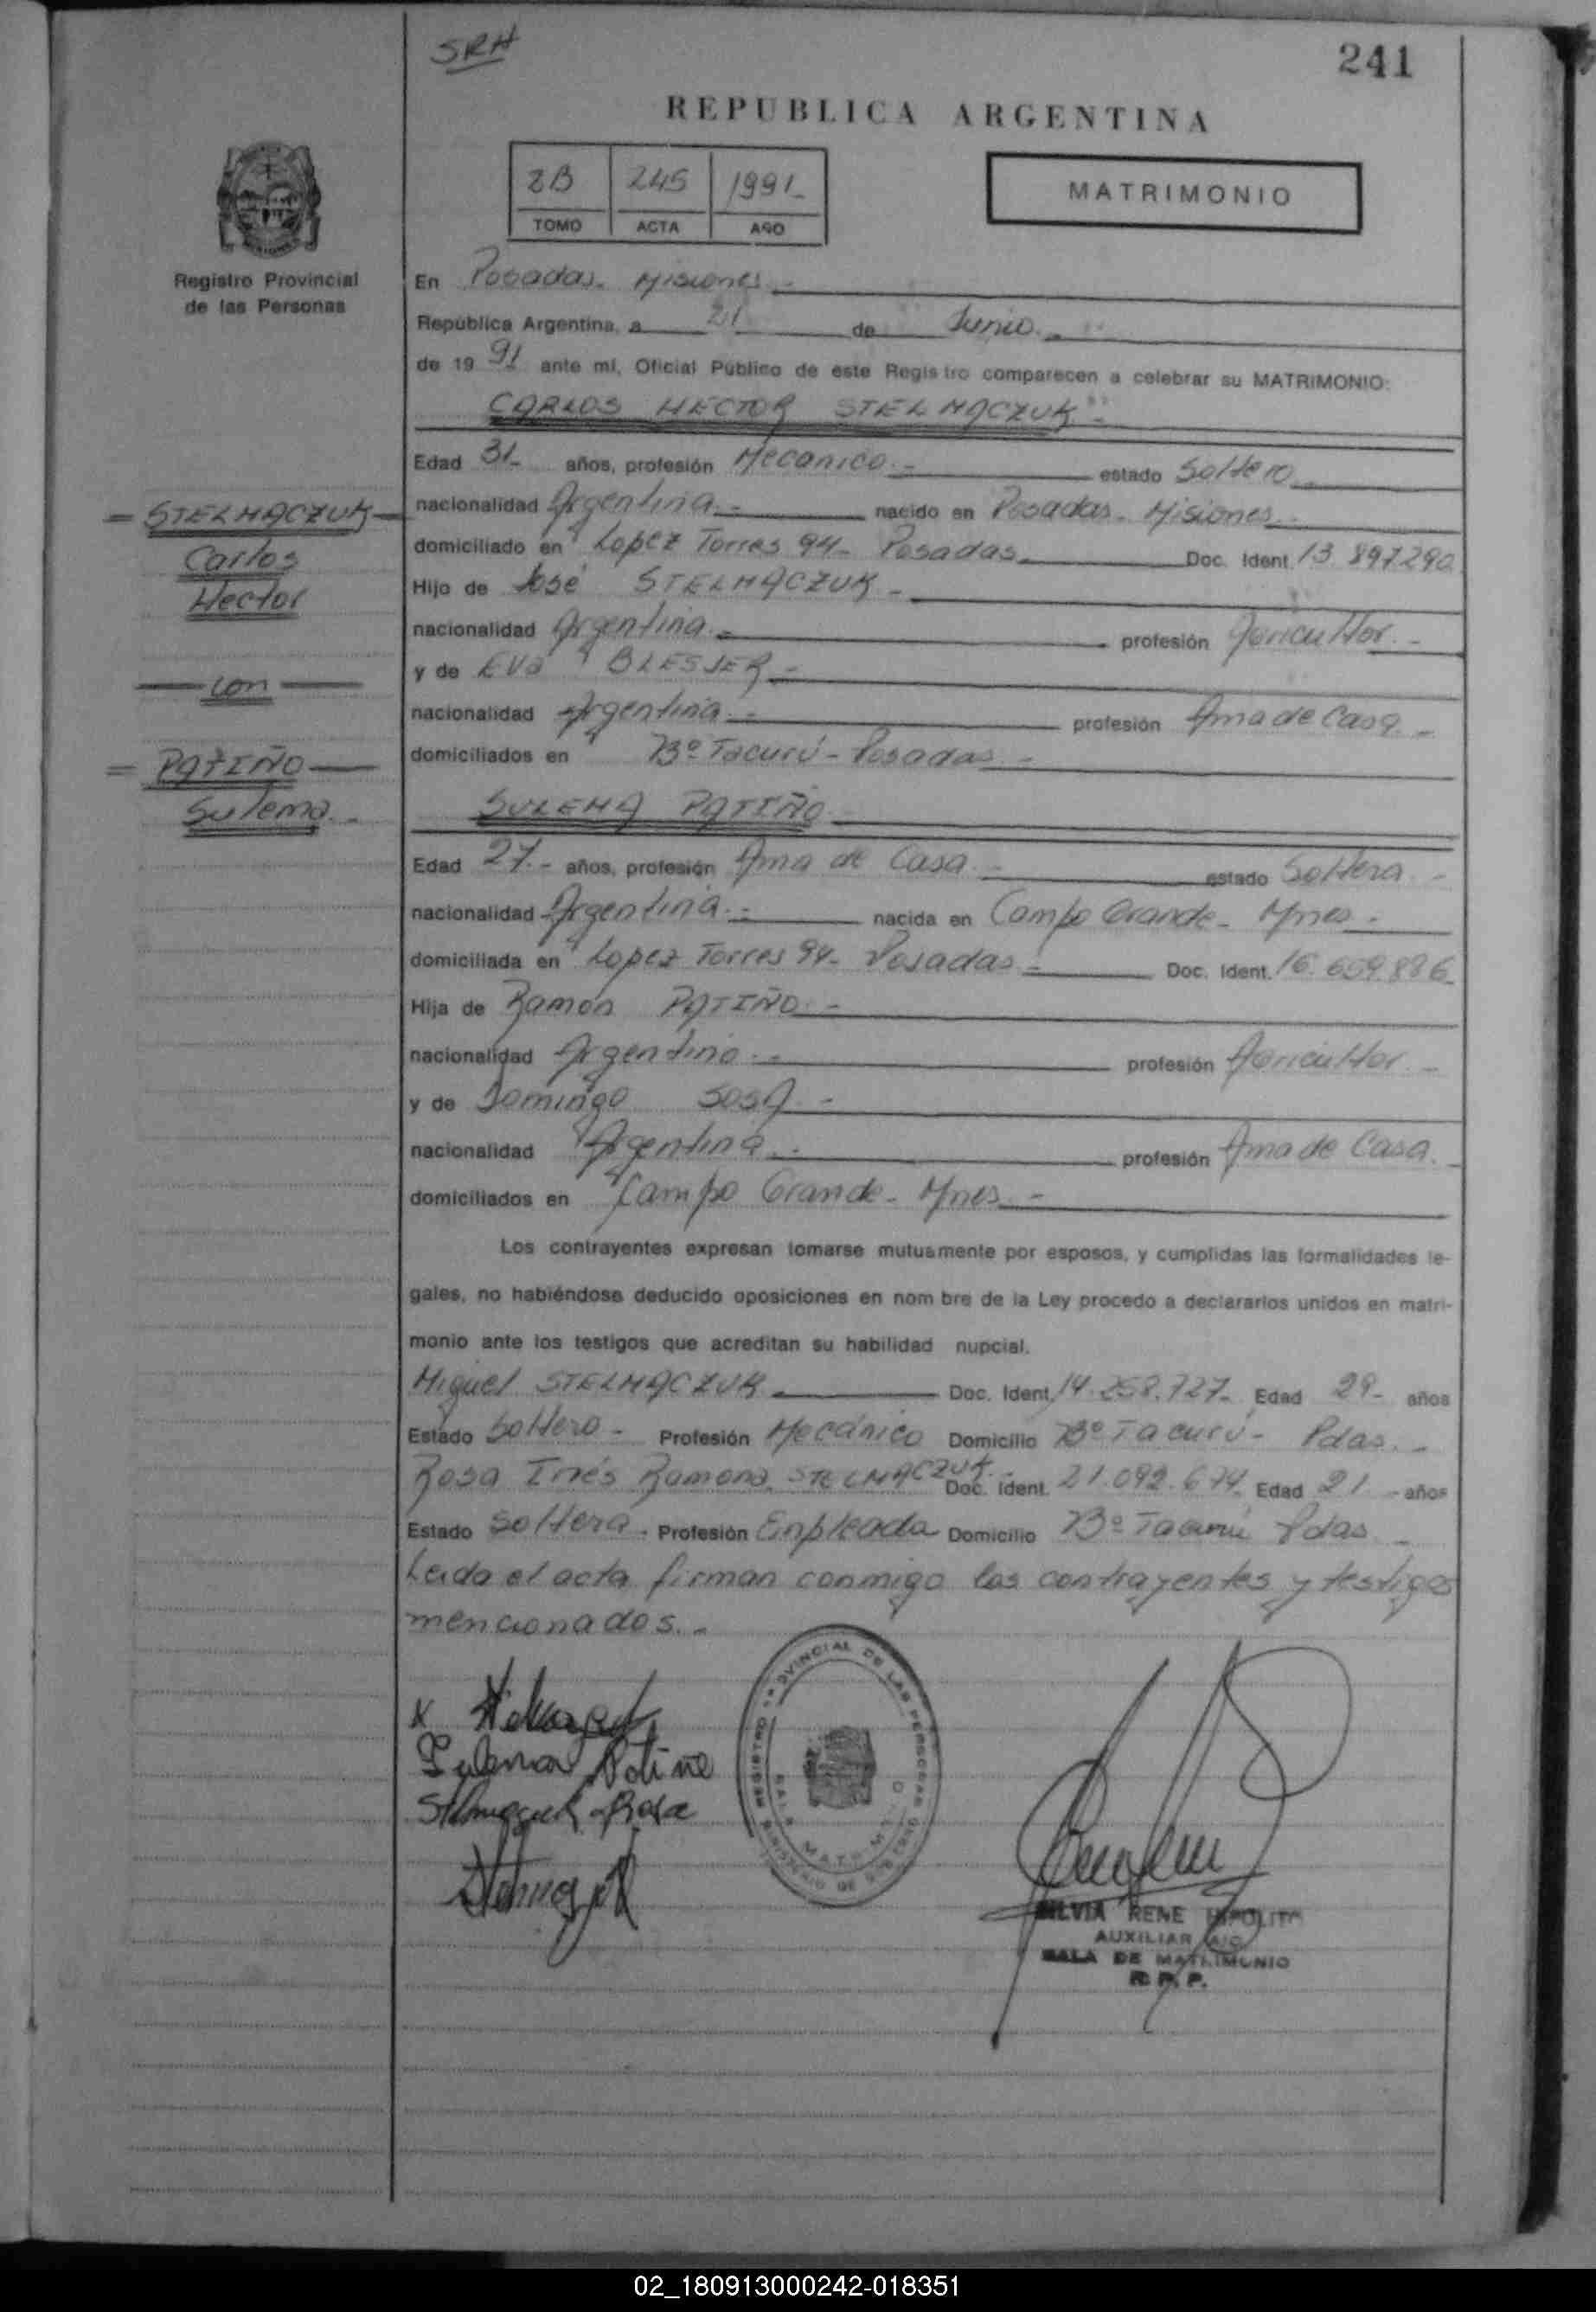 SRH
241
REPUBLICA ARGENTINA
2B 245 1991-
TOMO ACTA AÑO
MATRIMONIO
Registro Provincial
de las Personas
En Posadas. Misiones.-
República Argentina, a 21 de Junio.-
de 19 91 ante mí, Oficial Público de este Registro comparecen a celebrar su MATRIMONIO:
CARLOS HECTOR STELMACZUK.-
Edad 31.- años, profesión Mecanico.- estado Soltero
nacionalidad Argentina.- nacido en Posadas. Misiones.-
domiciliado en Lopez Torres 94- Posadas. Doc. Ident. 13.897.290
Hijo de José STELMACZUK.-
nacionalidad Argentina.- profesión Agricultor.-
y de Eva BLESSER.-
nacionalidad Argentina.- profesión Ama de Casa.-
domiciliados en Bº Tacurú - Posadas.-
= STELMACZUK
Carlos
Hector
con
= PATIÑO
Sulema.-
SULEMA PATIÑO.-
Edad 27.- años, profesión Ama de Casa.- estado Soltera.-
nacionalidad Argentina.- nacida en Campo Grande- Mnes.-
domiciliada en Lopez Torres 94- Posadas.- Doc. Ident. 16.659.886
Hija de Ramón PATIÑO.-
nacionalidad Argentina.- profesión Agricultor.-
y de Domingo SOSA.-
nacionalidad Argentina.- profesión Ama de Casa.
domiciliados en Campo Grande- Mnes.-
Los contrayentes expresan tomarse mutuamente por esposos, y cumplidas las formalidades le-
gales, no habiéndose deducido oposiciones en nom bre de la Ley procedo a declararlos unidos en matri-
monio ante los testigos que acreditan su habilidad nupcial.
Miguel STELMACZUK Doc. Ident. 14.258.727- Edad 29- años
Estado Soltero- Profesión Mecánico Domicilio Bº Tacurú- Pdas.-
Rosa Inés Ramona STELMACZUK.- Doc. Ident. 21.092.674 Edad 21 - años
Estado Soltera. Profesión Enpleada Domicilio Bº Tacurú Pdas.-
Leida el acta firman conmigo los contrayentes y testigos
mencionados.-
x
Sulema Patiño
Stelmaczuk Rosa
REGISTRO PROVINCIAL DE LAS PERSONAS
MINISTERIO DE GOBIERNO
SILVIA RENE HIPOLITO
AUXILIAR A/C
SALA DE MATRIMONIO
R. P. P.
02_180913000242-018351